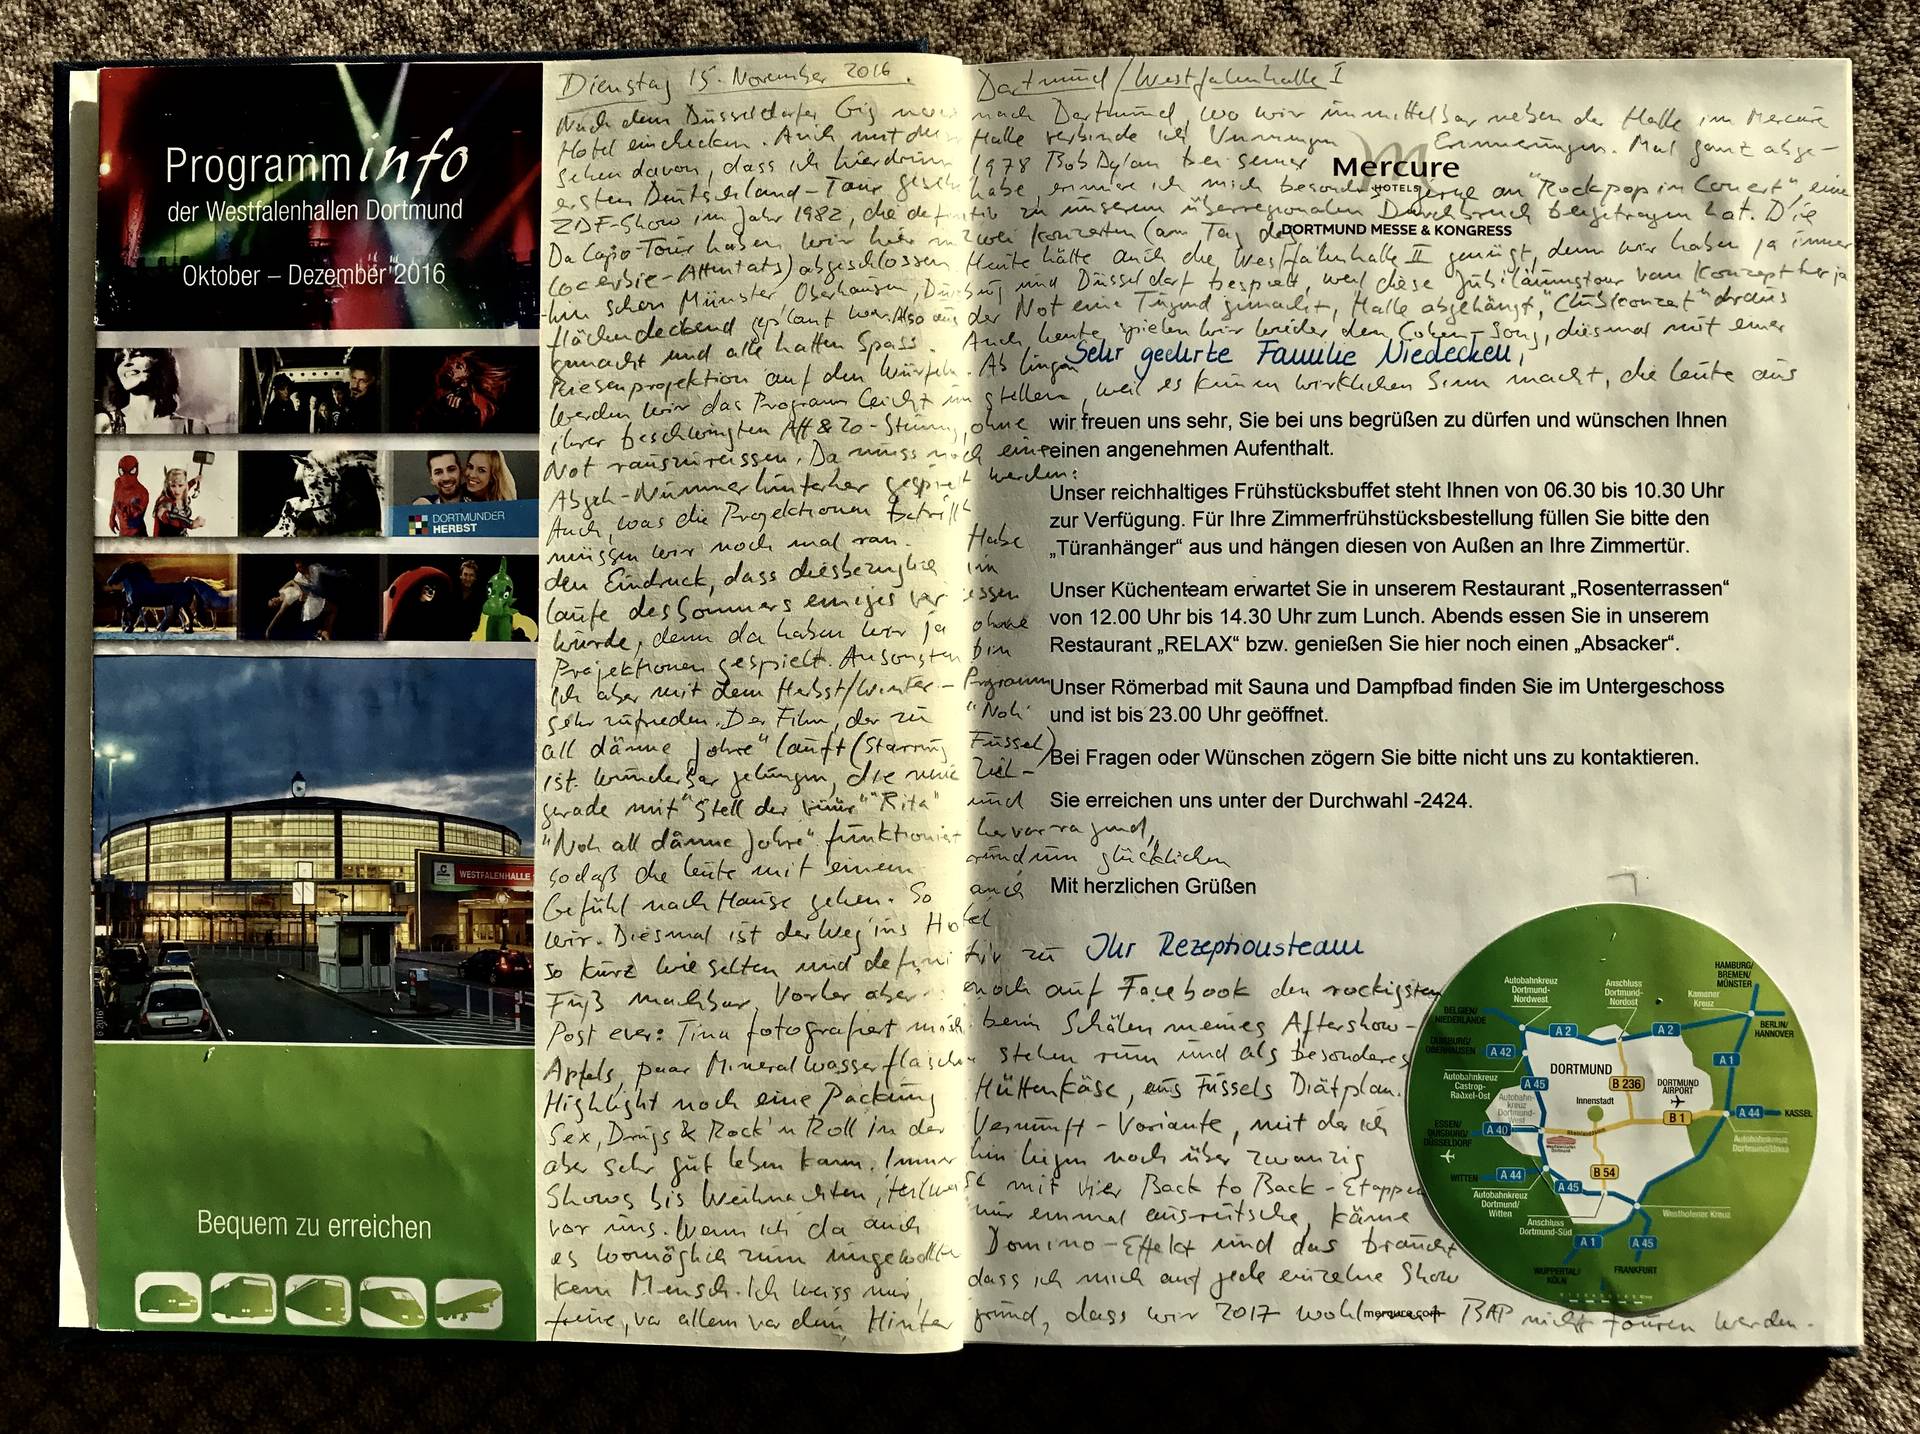 Programminfo
der Westfalenhallen Dortmund
Oktober – Dezember 2016
DORTMUNDER
HERBST
WESTFALENHALLE
Bequem zu erreichen
Dienstag 15. November 2016. Dortmund/Westfalenhalle I
Nach dem Düsseldorfer Gig nach Dortmund, wo wir unmittelbar neben der Halle im Mercure
Hotel einchecken. Auch mit der Halle verbinde ich Erinnerungen. Mal ganz abge-
sehen davon, dass ich hier drin 1978 Bob Dylan bei seiner
ersten Deutschland-Tour gesehen habe, erinnere ich mich besonders gerne an "Rockpop in Concert", eine
ZDF-Show im Jahr 1982, die definitiv zu unserem überregionalen Durchbruch beigetragen hat. Die
Da Capo-Tour haben wir hier mit zwei Konzerten (am Tag des
Locerbie-Attentats) abgeschlossen. Heute hätte auch die Westfalenhalle II genügt, denn wir haben ja immer-
hin schon Münster, Oberhausen, Duisburg und Düsseldorf bespielt, weil diese Jubiläumstour vom Konzept her ja
flächendeckend geplant war. Also aus der Not eine Tugend gemacht, Halle abgehängt, "Clubkonzert" draus
gemacht und alle hatten Spass. Auch heute spielen wir wieder den Cohen-Song, diesmal mit einer
Riesenprojektion auf den Würfeln. Ab Lingen
werden wir das Programm leicht umstellen, weil es kaum wirklichen Sinn macht, die Leute aus
ihrer beschwingten Aff & zo-Stimmung, ohne
Not rauszureissen. Da muss noch eine
Abgeh-Nummer hinterher gespielt werden.
Auch, was die Projektionen betrifft
müssen wir noch mal ran. Habe
den Eindruck, dass diesbezüglich im
Laufe des Sommers einiges vergessen
wurde, denn da haben wir ja ohne
Projektionen gespielt. Ansonsten bin
ich aber mit dem Herbst/Winter-Programm
sehr zufrieden. Der Film, der zu "Noh
all dänne Johre" läuft (Starring Füssel)
ist wunderbar gelungen, die neue Ziel-
gerade mit "Stell der vüür" "Rita" und
"Noh all dänne Johre" funktioniert hervorragend,
sodaß die Leute mit einem rundum glücklichen
Gefühl nach Hause gehen. So auch
wir. Diesmal ist der Weg ins Hotel
so kurz wie selten und definitiv zu
Fuß machbar. Vorher aber noch auf Facebook den rockigsten
Post ever: Tina fotografiert mich beim Schälen meines Aftershow-
Apfels, paar Mineralwasserflaschen stehen rum und als besonderes
Highlight noch eine Packung Hüttenkäse, aus Füssels Diätplan.
Sex, Drugs & Rock'n Roll in der Vernunft-Variante, mit der ich
aber sehr gut leben kann. Immerhin liegen noch über zwanzig
Shows bis Weihnachten, teilweise mit vier Back to Back-Etappen
vor uns. Wenn ich da auch nur einmal ausrutsche, käme
es womöglich zum ungewollten Domino-Effekt und das braucht
kein Mensch. Ich weiss nur, dass ich mich auf jede einzelne Show
freue, vor allem vor dem Hintergrund, dass wir 2017 wohl mit BAP nicht touren werden.
Mercure
HOTELS
DORTMUND MESSE & KONGRESS
Sehr geehrte Familie Niedecken,
wir freuen uns sehr, Sie bei uns begrüßen zu dürfen und wünschen Ihnen
einen angenehmen Aufenthalt.
Unser reichhaltiges Frühstücksbuffet steht Ihnen von 06.30 bis 10.30 Uhr
zur Verfügung. Für Ihre Zimmerfrühstücksbestellung füllen Sie bitte den
„Türanhänger“ aus und hängen diesen von Außen an Ihre Zimmertür.
Unser Küchenteam erwartet Sie in unserem Restaurant „Rosenterrassen“
von 12.00 Uhr bis 14.30 Uhr zum Lunch. Abends essen Sie in unserem
Restaurant „RELAX“ bzw. genießen Sie hier noch einen „Absacker“.
Unser Römerbad mit Sauna und Dampfbad finden Sie im Untergeschoss
und ist bis 23.00 Uhr geöffnet.
Bei Fragen oder Wünschen zögern Sie bitte nicht uns zu kontaktieren.
Sie erreichen uns unter der Durchwahl -2424.
Mit herzlichen Grüßen
Ihr Rezeptionsteam
mercure.com
HAMBURG/
BREMEN/
MÜNSTER
Autobahnkreuz
Dortmund-
Nordwest
Anschluss
Dortmund-
Nordost
Kamener
Kreuz
BELGIEN/
NIEDERLANDE
A 2
A 2
BERLIN/
HANNOVER
DUISBURG/
OBERHAUSEN
A 42
A 1
Autobahnkreuz
Castrop-
Rauxel-Ost
A 45
DORTMUND
B 236
DORTMUND
AIRPORT
Autobahn-
kreuz
Dortmund-
West
Innenstadt
B 1
A 44
KASSEL
ESSEN/
DUISBURG/
DÜSSELDORF
A 40
Rheinlanddamm
Autobahnkreuz
Dortmund/Unna
WITTEN
A 44
A 45
B 54
Autobahnkreuz
Dortmund/
Witten
Anschluss
Dortmund-Süd
Westhofener Kreuz
A 1
A 45
WUPPERTAL/
KÖLN
FRANKFURT